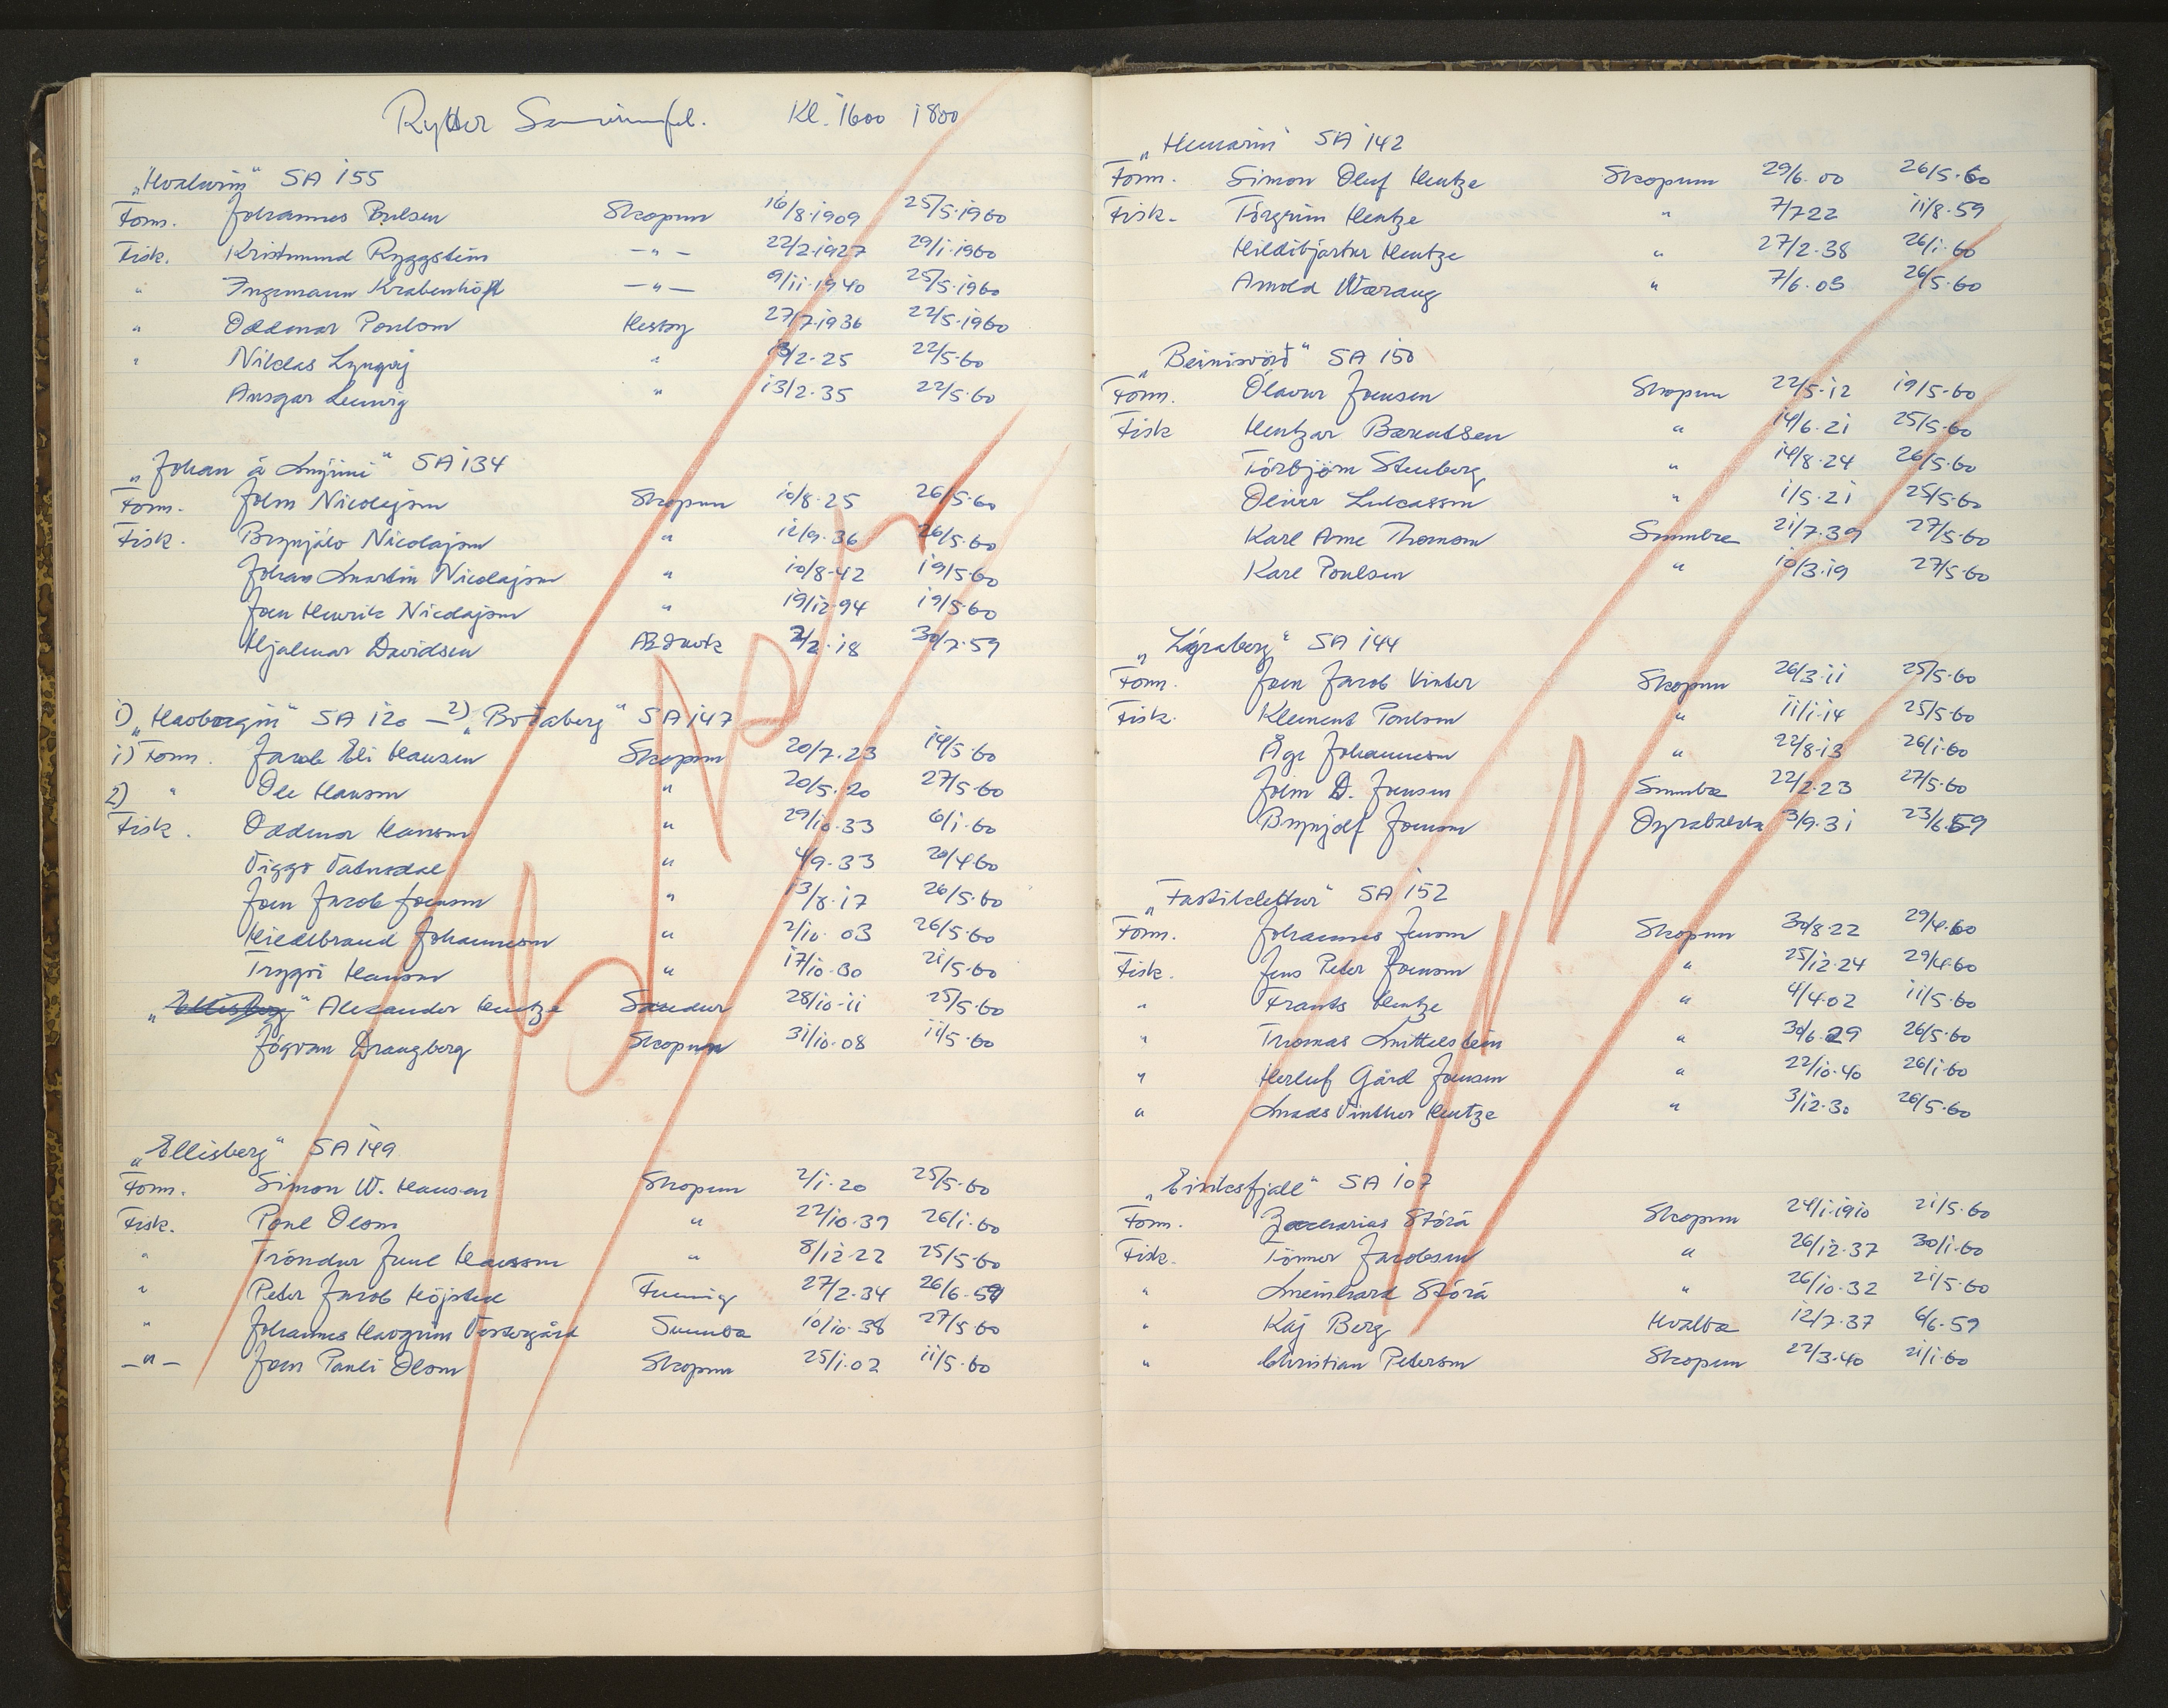 Rytter Kl. 1600 1800
„Hvalurin" SA 155
Form. Johannes Poulsen Skopun 16/8.1909 25/5.1960
Fisk. Kristmund Ryggstein —„— 22/2.1927 29/1.1960
" Ingemann Krabenhöft —„— 9/11.1940 25/5.1960
" Oddmar Poulson Hestoy 27/7.1936 22/5.1960
" Niklas Lyngøj " 3/2.25 22/5.60
Ansgar Lenvig " 13/2.35 22/5.60
„Johan á Mýrini" SA 134
Form. John Nicolajson Skopun 10/8.25 26/5.60
Fisk. Brynjálv Nicolajson " 12/9.36 26/5.60
Johan Martin Nicolajson " 10/8.42 19/5.60
Joen Henrik Nicolajson " 19/12.94 19/5.60
Hjalmar Davidsen 2/2.18 30/7.59
1) „Havbúgvin" SA 120 — 2) „Boðaberg" SA 147
1) Form. Jacob Eli Hansen Skopun 20/7.23 14/5.60
2) " Ole Hanson " 20/5.20 27/5.60
Fisk. Oddmar Hanson " 29/10.33 6/1.60
Viggo Vatnsdal " 4/9.33 20/4.60
Joen Jacob Joenson " 13/8.17 26/5.60
Hildibrand Johanneson " 2/10.03 26/5.60
Tryggvi Hanson " 17/10.30 21/5.60
„Ellisberg" Alexander Hentze Sandur 28/10.11 25/5.60
Jógvan Drangberg Skopun 31/10.08 11/5.60
„Ellisberg" SA 149
Form. Simon W. Hansen Skopun 2/1.20 25/5.60
Fisk. Poul Olson " 22/10.39 26/1.60
" Tróndur Juul Hansson " 8/12.22 25/5.60
" Peter Jacob Höjsted Funnig 27/2.34 26/6.59
" Johannes Havgrim Vestergård Sumba 10/10.38 27/5.60
—„— Joen Pauli Olson Skopun 25/1.02 11/5.60
„Hemarin" SA 142
Form. Simon Oluf Hentze Skopun 29/6.00 26/5.60
Fisk. Tórgrim Hentze " 7/7.22 11/8.59
Hildibjartur Hentze " 27/2.38 26/1.60
Arnold Wærang " 7/6.03 26/5.60
„Beinisvörð" SA 150
Form. Ólavur Joensen Skopun 22/5.12 19/5.60
Fisk Hentzar Bærentsen " 14/6.21 25/5.60
Tórbjörn Stenberg " 14/8.24 26/5.60
Oliver Lukasson " 1/5.21 25/5.60
Karl Arne Thomson Sumba 21/7.39 27/5.60
Karl Poulsen " 10/3.19 27/5.60
„Lýraberg" SA 144
Form. Joen Jacob Vinter Skopun 26/3.11 25/5.60
Fisk. Klement Poulson " 11/1.14 25/5.60
Åge Johanneson " 22/8.13 26/1.60
John D. Joensen Sumba 22/2.23 27/5.60
Brynjolf Joenson Oyrabakka 3/9.31 23/6.59
„Fastiklettur" SA 152
Form. Johannes Jenson Skopun 30/8.22 29/4.60
Fisk. Jens Peter Joenson " 25/12.24 29/4.60
" Frants Hentze " 4/4.02 11/5.60
" Thomas Mittelstein " 30/6.29 26/5.60
" Herluf Gård Joensen " 22/10.40 26/1.60
" Mads Vinther Hentze " 3/12.30 26/5.60
„Eiriksfjall" SA 107
Form. Zaccharias Stórá Skopun 24/1.1910 21/5.60
Fisk. Tórmar Jacobsen " 26/12.37 30/1.60
" Meinhard Stórá " 26/10.32 21/5.60
" Kaj Berg Hvalba 12/7.37 6/6.59
" Christian Peterson Skopun 22/3.40 21/1.60